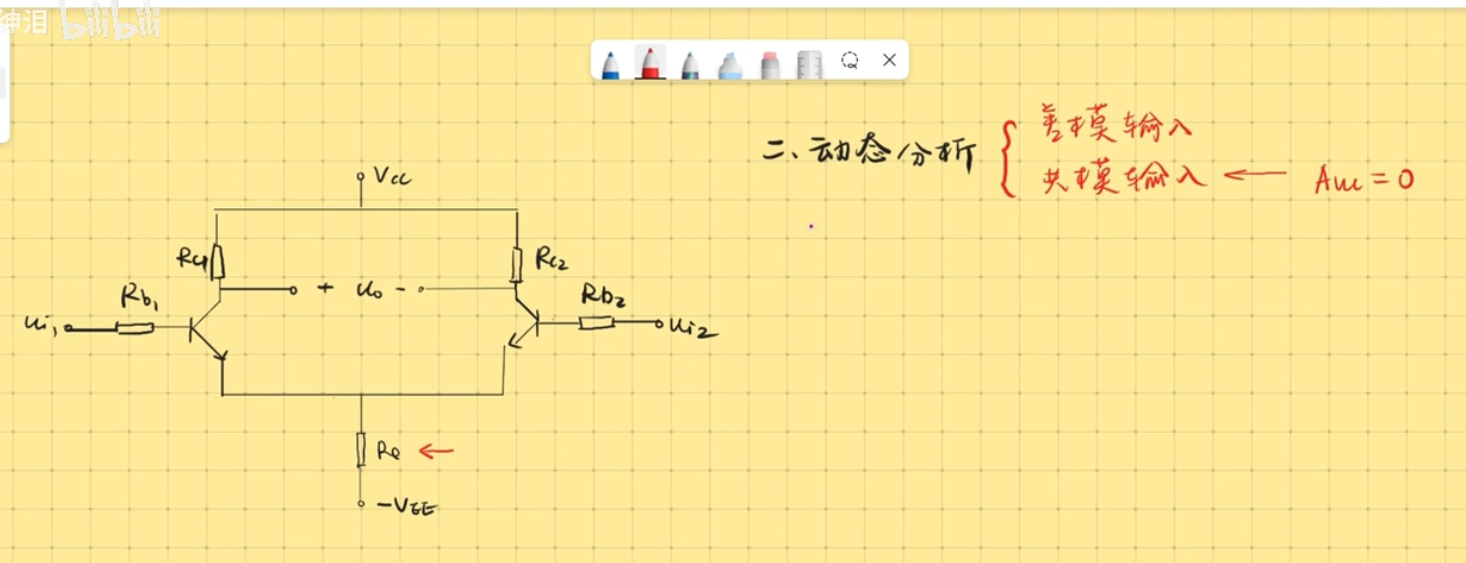 绅泪 bilibili
二、动态分析
差模输入
共模输入 ← Auc = 0
Vcc
Rc1
Rc2
+ uo -
Rb1
Rb2
ui1
ui2
Re ←
-VEE